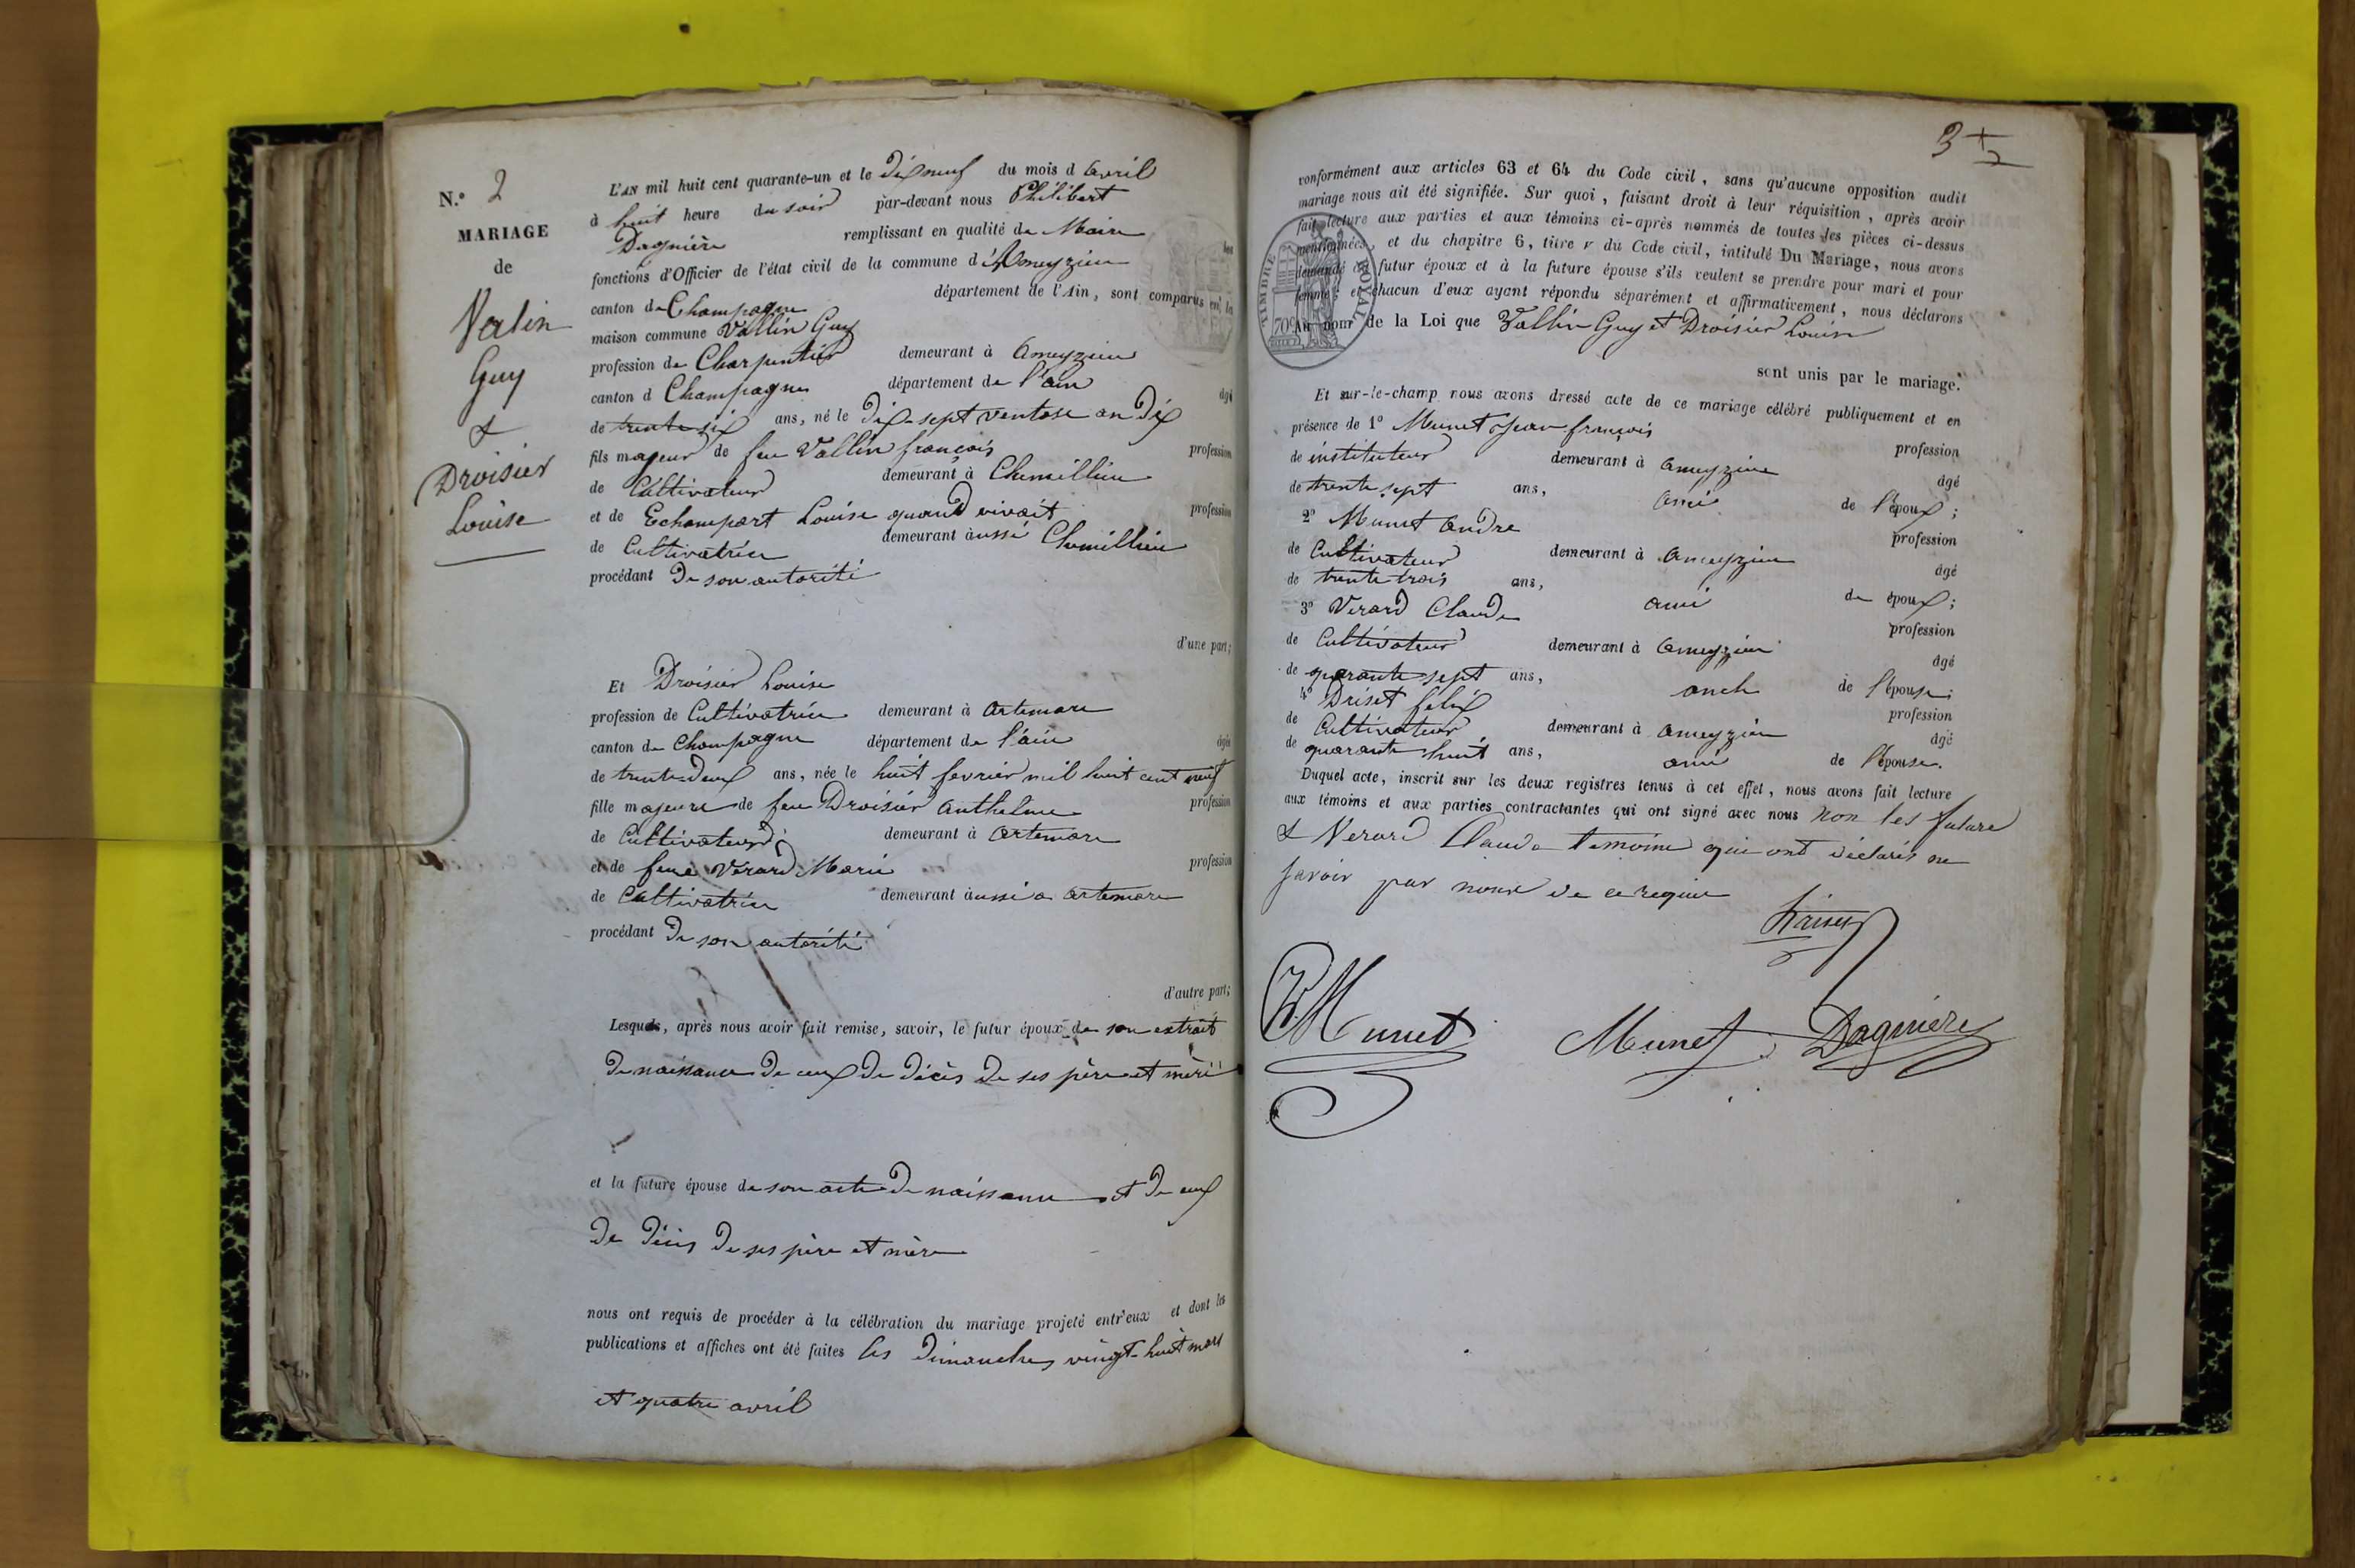 N.° 2
MARIAGE
de
Valin
Guy
&
Droisier
Louise
L'AN mil huit cent quarante-un et le dix neuf du mois d avril
à huit heure du soir par-devant nous Philibert
Dagnière remplissant en qualité de Maire les
fonctions d'Officier de l'état civil de la commune d'Ameyzieu
canton de Champagne département de l'Ain, sont comparus en la
maison commune Vallin Guy
profession de Charpentier demeurant à Ameyzieu
canton d Champagne département de l'ain âgé
de trente six ans, né le dix-sept ventose an dix
fils majeur de feu Vallin françois profession
de Cultivateur demeurant à Chemillieu
et de Echampart Louise quand vivait profession
de Cultivatrice demeurant àussi Chemillieu
procédant de son autorité
d'une part;
Et Droisier Louise
profession de Cultivatrice demeurant à Artemare
canton de Champagne département de l'ain âgée
de trente-deux ans, née le huit fevrier mil huit cent neuf
fille majeure de feu Droisier Anthelme profession
de Cultivateur demeurant à Artemare
et de feue Verard Marie profession
de Cultivatrice demeurant àussi a artemare
procédant de son autorité
d'autre part;
Lesquels, après nous avoir fait remise, savoir, le futur époux de son extrait
de naissance de ceux de décès de ses père et mère
et la future épouse de son acte de naissance et de ceux
de décès de ses père et mère
nous ont requis de procéder à la célébration du mariage projeté entr'eux et dont les
publications et affiches ont été faites les dimanches vingt-huit mars
et quatre avril
3
2
conformément aux articles 63 et 64 du Code civil, sans qu'aucune opposition audit
mariage nous ait été signifiée. Sur quoi, faisant droit à leur réquisition, après avoir
fait lecture aux parties et aux témoins ci-après nommés de toutes les pièces ci-dessus
mentionnées, et du chapitre 6, titre v du Code civil, intitulé Du Mariage, nous avons
demandé au futur époux et à la future épouse s'ils veulent se prendre pour mari et pour
femme; et chacun d'eux ayant répondu séparément et affirmativement, nous déclarons
AU nom de la Loi que Vallin Guy et Droisier Louise
TIMBRE ROYAL
70c
sont unis par le mariage.
Et sur-le-champ nous avons dressé acte de ce mariage célébré publiquement et en
présence de 1° Munet Jean françois profession
de instituteur demeurant à Ameyzieu âgé
de trente sept ans, ami de l'époux;
2° Munet André profession
de Cultivateur demeurant à Ameyzieu âgé
de trente trois ans, ami de époux;
3° Verard Claude profession
de Cultivateur demeurant à Ameyzieu âgé
de quarante sept ans, oncle de l'épouse;
4° Driset felix profession
de Cultivateur demeurant à Ameyzieu âgé
de quarante huit ans, ami de l'épouse.
Duquel acte, inscrit sur les deux registres tenus à cet effet, nous avons fait lecture
aux témoins et aux parties contractantes qui ont signé avec nous non les future
& Verard Claude temoins qui ont déclarés ne
savoir par nous de ce requis
Munet Munet Dagnière